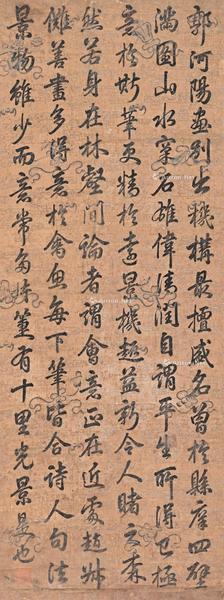 郭河陽畫別出機構最擅威名曾於縣庠四壁
滿圖山水窠石雄偉清潤自謂平生所得已極
意於妙筆更精於遠景機趣益新令人睹之森
然若身在林壑間論者謂會意正在近處趙叔
儺善畫多得意於禽魚每下筆皆合詩人句法
景物雖少而意常多有十里光景